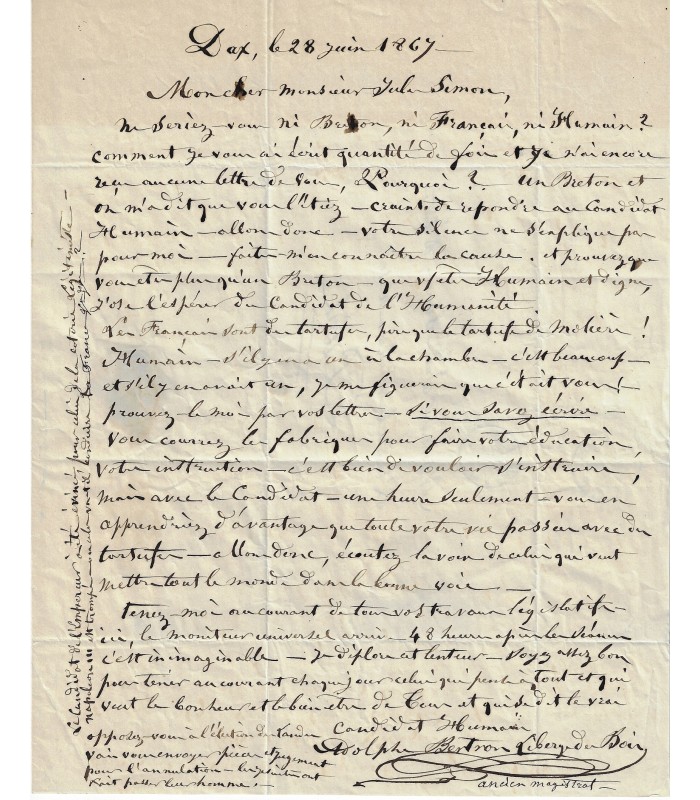 Dax, le 28 juin 1867
Mon cher monsieur Jules Simon,
ne seriez-vous ni Breton, ni Français, ni Humain ?
comment je vous ai écrit quantité de fois et je n'ai encore
reçu aucune lettre de vous, Pourquoi ? un Breton et
on m'a dit que vous l'étiez — crainte de repondre au Candidat
Humain — allons donc — votre silence ne s'explique pas
pour moi — faites m'en connaître la cause. et prouvez que
vous etes plus qu'un Breton — que vs etes Humain et digne,
j'ose l'espérer du Candidat de l'Humanité.
Les Français sont des tartufes, pires que le tartufe de Molière !
Humain — s'il y en a un à la chambre — c'est beaucoup —
et s'il y en avait un, je me figurais que c'était vous !
prouvez-le moi par vos lettres — si vous savez écrire —
vous courrez les fabriques pour faire votre éducation,
votre instruction — c'est bien de vouloir s'instruire,
mais avec le Candidat — une heure seulement — vous en
apprendriez d'avantage que toute votre vie passée avec des
tartufes — allons donc, écoutez la voix de celui qui veut
mettre tout le monde dans la bonne voie —
tenez-moi au courant de tous vos travaux législatifs —
ici, le moniteur universel arrive 48 heures après les séances
c'est inimaginable — je déplore cet lenteur — soyez assez bon
pour tenir au courant chaque jour celui qui pense à tout et qui
veut le bonheur et le bien être de tous et qui se dit le vrai
Candidat Humain
Adolphe Bertron
ancien magistrat
opposez-vous à l'élection des Landes
vais vous envoyer pièces et jugement
pour l'annulation — les jésuites ont
fait passer leur homme.
Le Candidat de l'Empereur a été évincé pour celui de la coterie légitimiste —
napoléon III est trompé —